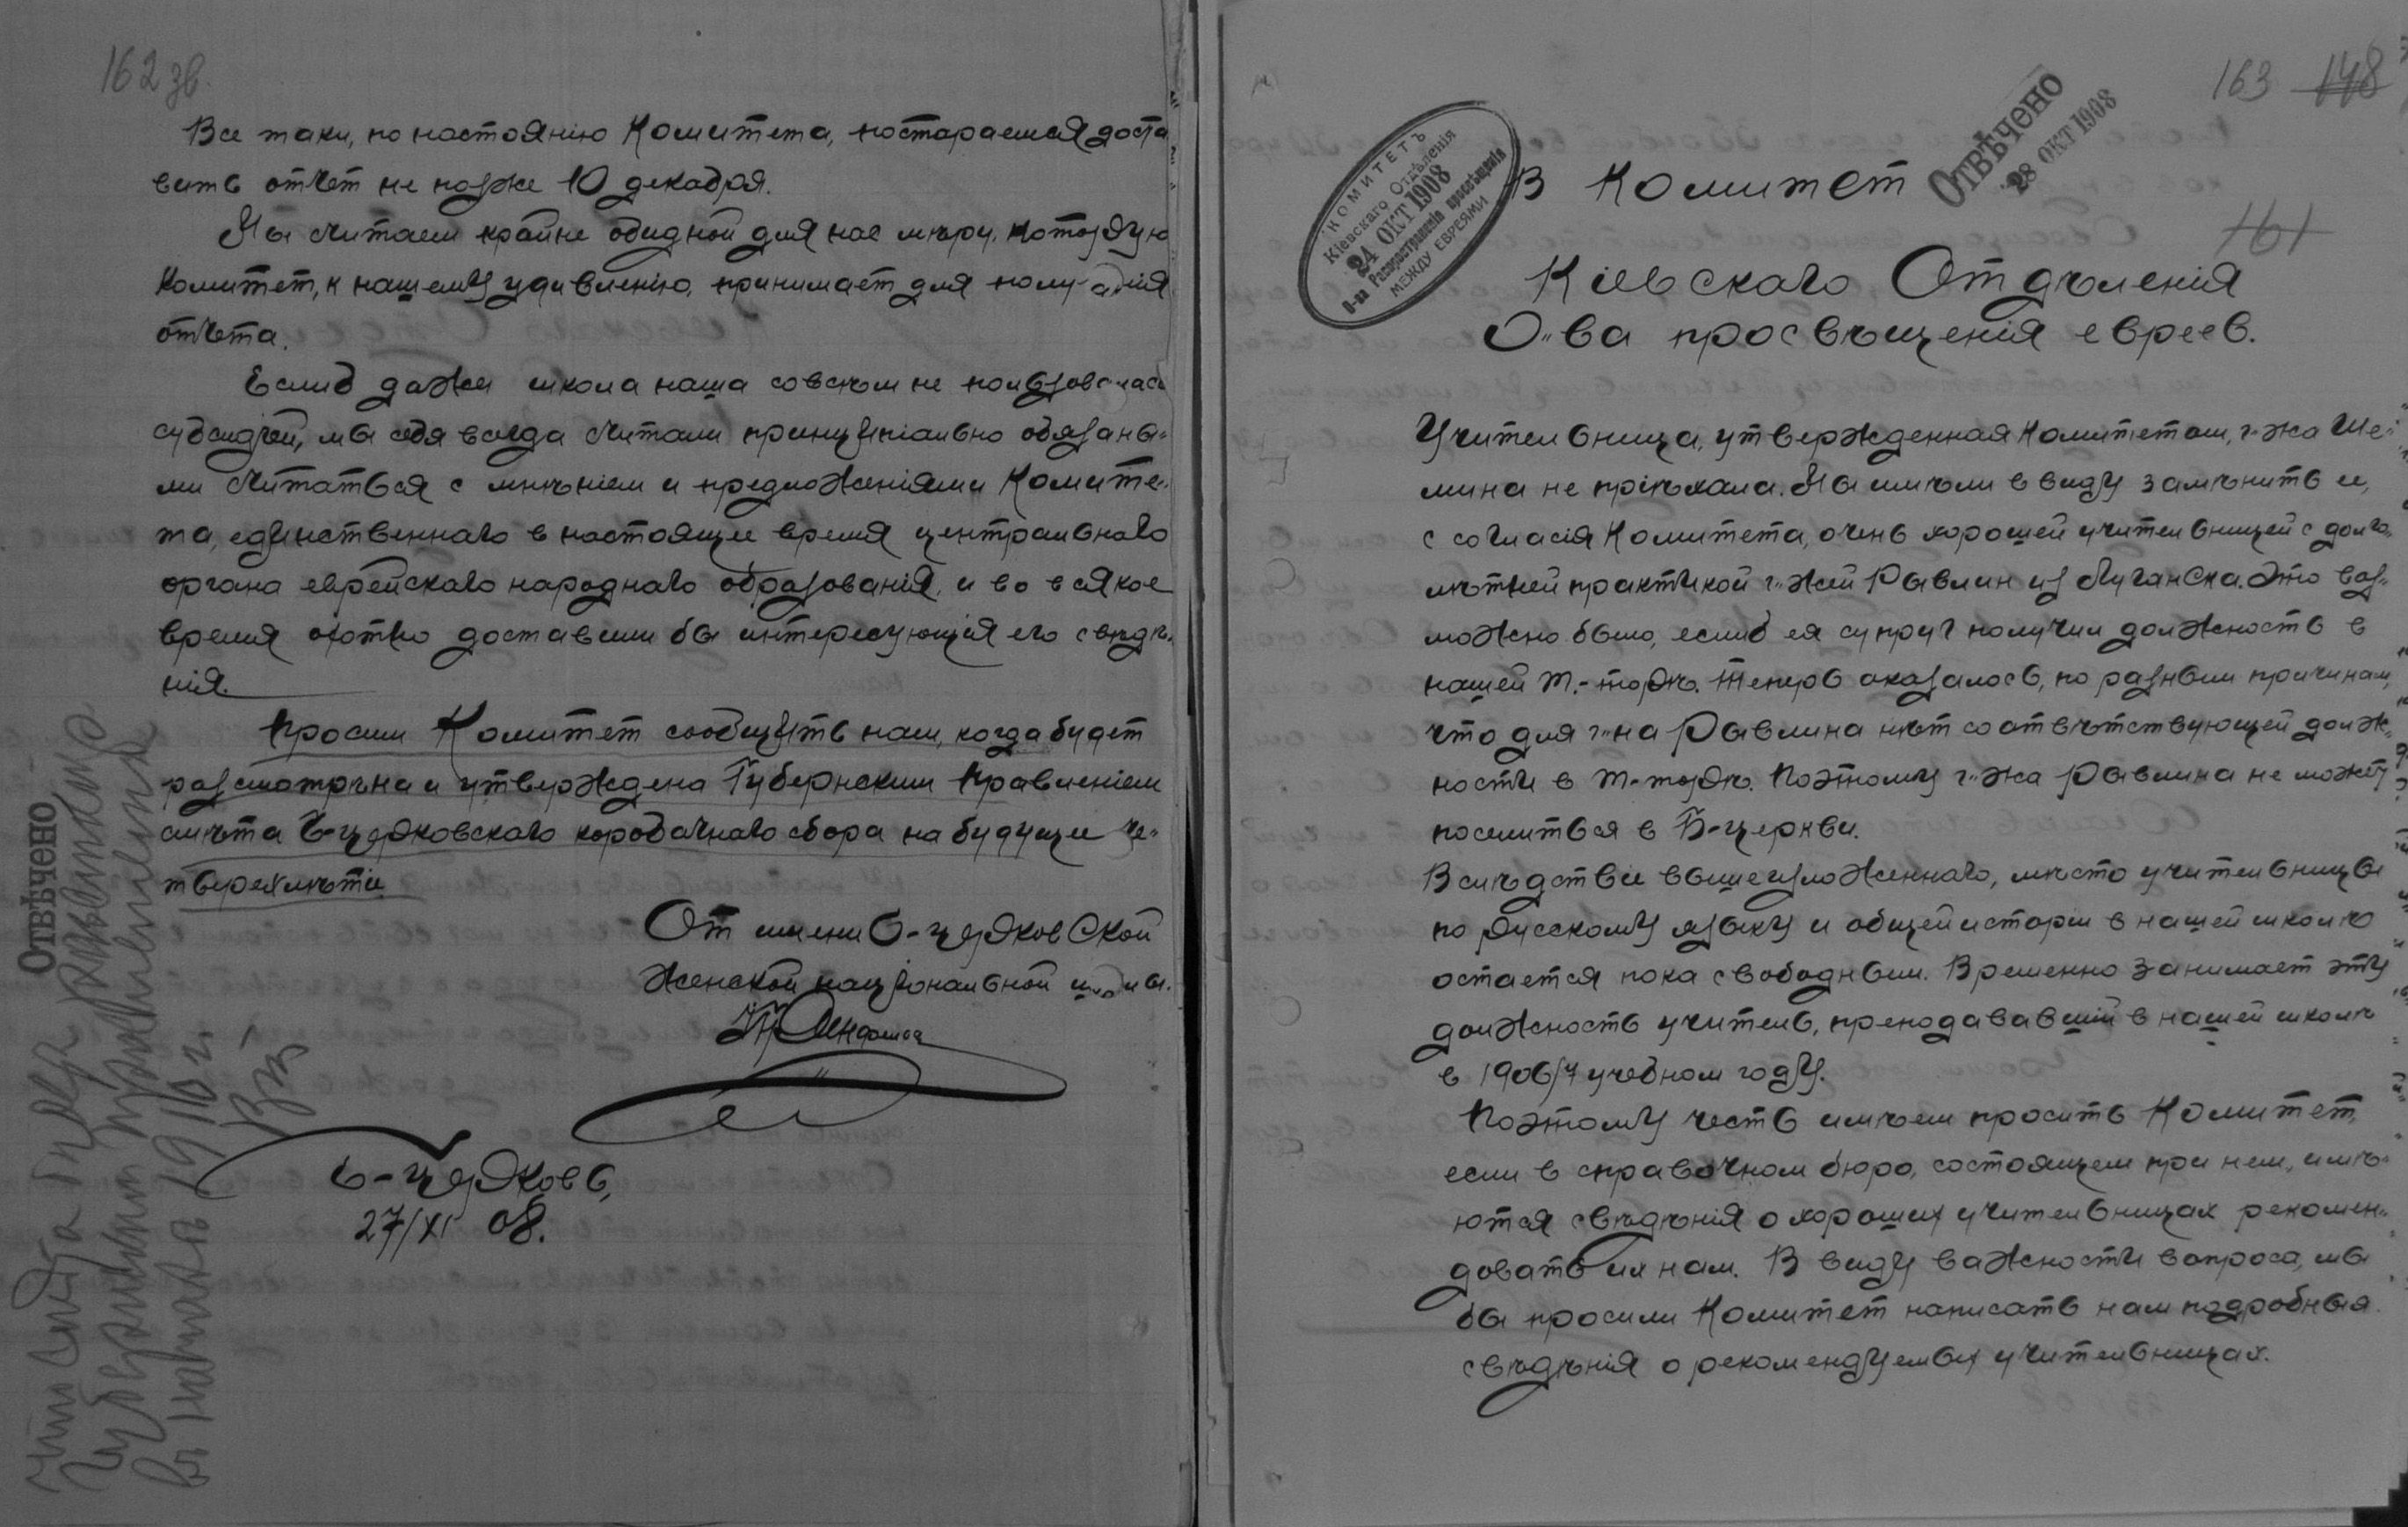 162 зв.
Все таки, по настоянію Комитета, постараемся доста
вить отчет не позже 10 декабря.
Мы считаем крайне обидной для нас мѣру, которую
Комитет, к нашему удивленію, принимает для полученія
отчета.
Еслиб даже школа наша совсѣм не пользовалась
субсидіей, мы себя всегда считали принципіально обязаны-
ми считаться с мнѣніем и предложеніями Комите-
та, единственнаго в настоящее время центральнаго
органа еврейскаго народнаго образованія, и во всякое
время охотно доставили бы интересующія его свѣдѣ-
нія.
Просим Комитет сообщить нам, когда будет
разсмотрѣна и утверждена Губернским Правленіем
смѣта Б-церковскаго коробочнаго сбора на будущее че-
тырехлѣтіе
От имени Б-церковской
Женской національной школы.
Б-Церковь,
27/XI 08.
ОТВѢЧЕНО
Что смѣта будет
Губернским Правленіем
въ началѣ 1910 г.
163 148
161
КОМИТЕТЪ
Кіевскаго Отдѣленія
24 ОКТ 1908
О-ва Распространенія просвѣщенія
МЕЖДУ ЕВРЕЯМИ
ОТВѢЧЕНО
28 ОКТ 1908
В Комитет
Кіевскаго Отдѣленія
О-ва просвѣщенія евреев.
Учительница, утвержденная Комитетом, г-жа Ше-
мина не пріѣхала. Мы имѣли в виду замѣнить ее,
с согласія Комитета, очень хорошей учительницей с долго-
лѣтней практикой г-жей Рывлин из Луганска. Это воз-
можно было, еслиб ея супруг получил должность в
нашей Т.-торѣ. Теперь оказалось, по разным причинам,
что для г-на Рывлина нѣт соотвѣтствующей долж-
ности в Т-торѣ. Поэтому г-жа Рывлина не может
поселиться в Б-церкви.
Вслѣдствіе вышеизложеннаго, мѣсто учительницы
по русскому языку и общей исторіи в нашей школѣ
остается пока свободным. Временно занимает эту
должность учитель, преподававшій в нашей школѣ
в 1906/7 учебном году.
Поэтому честь имѣем просить Комитет,
если в справочном бюро, состоящем при нем, имѣ-
ются свѣдѣнія о хороших учительницах рекомен-
довать их нам. В виду важности вопроса, мы
бы просили Комитет написать нам подробныя
свѣдѣнія о рекомендуемых учительницах.